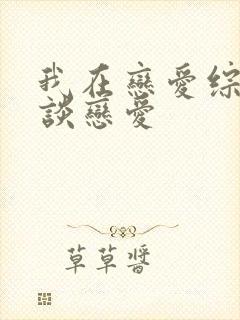 我在戀愛綜
談戀愛
草草醬